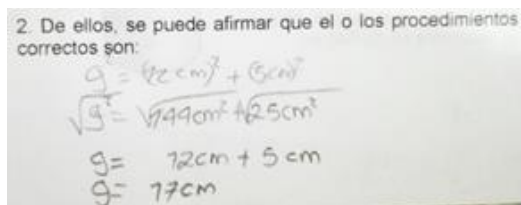 2. De ellos, se puede afirmar que el o los procedimientos
correctos son:
g² = (12cm)² + (5cm)²
√g² = √144cm² + √25cm²
g= 12cm + 5 cm
g= 17cm